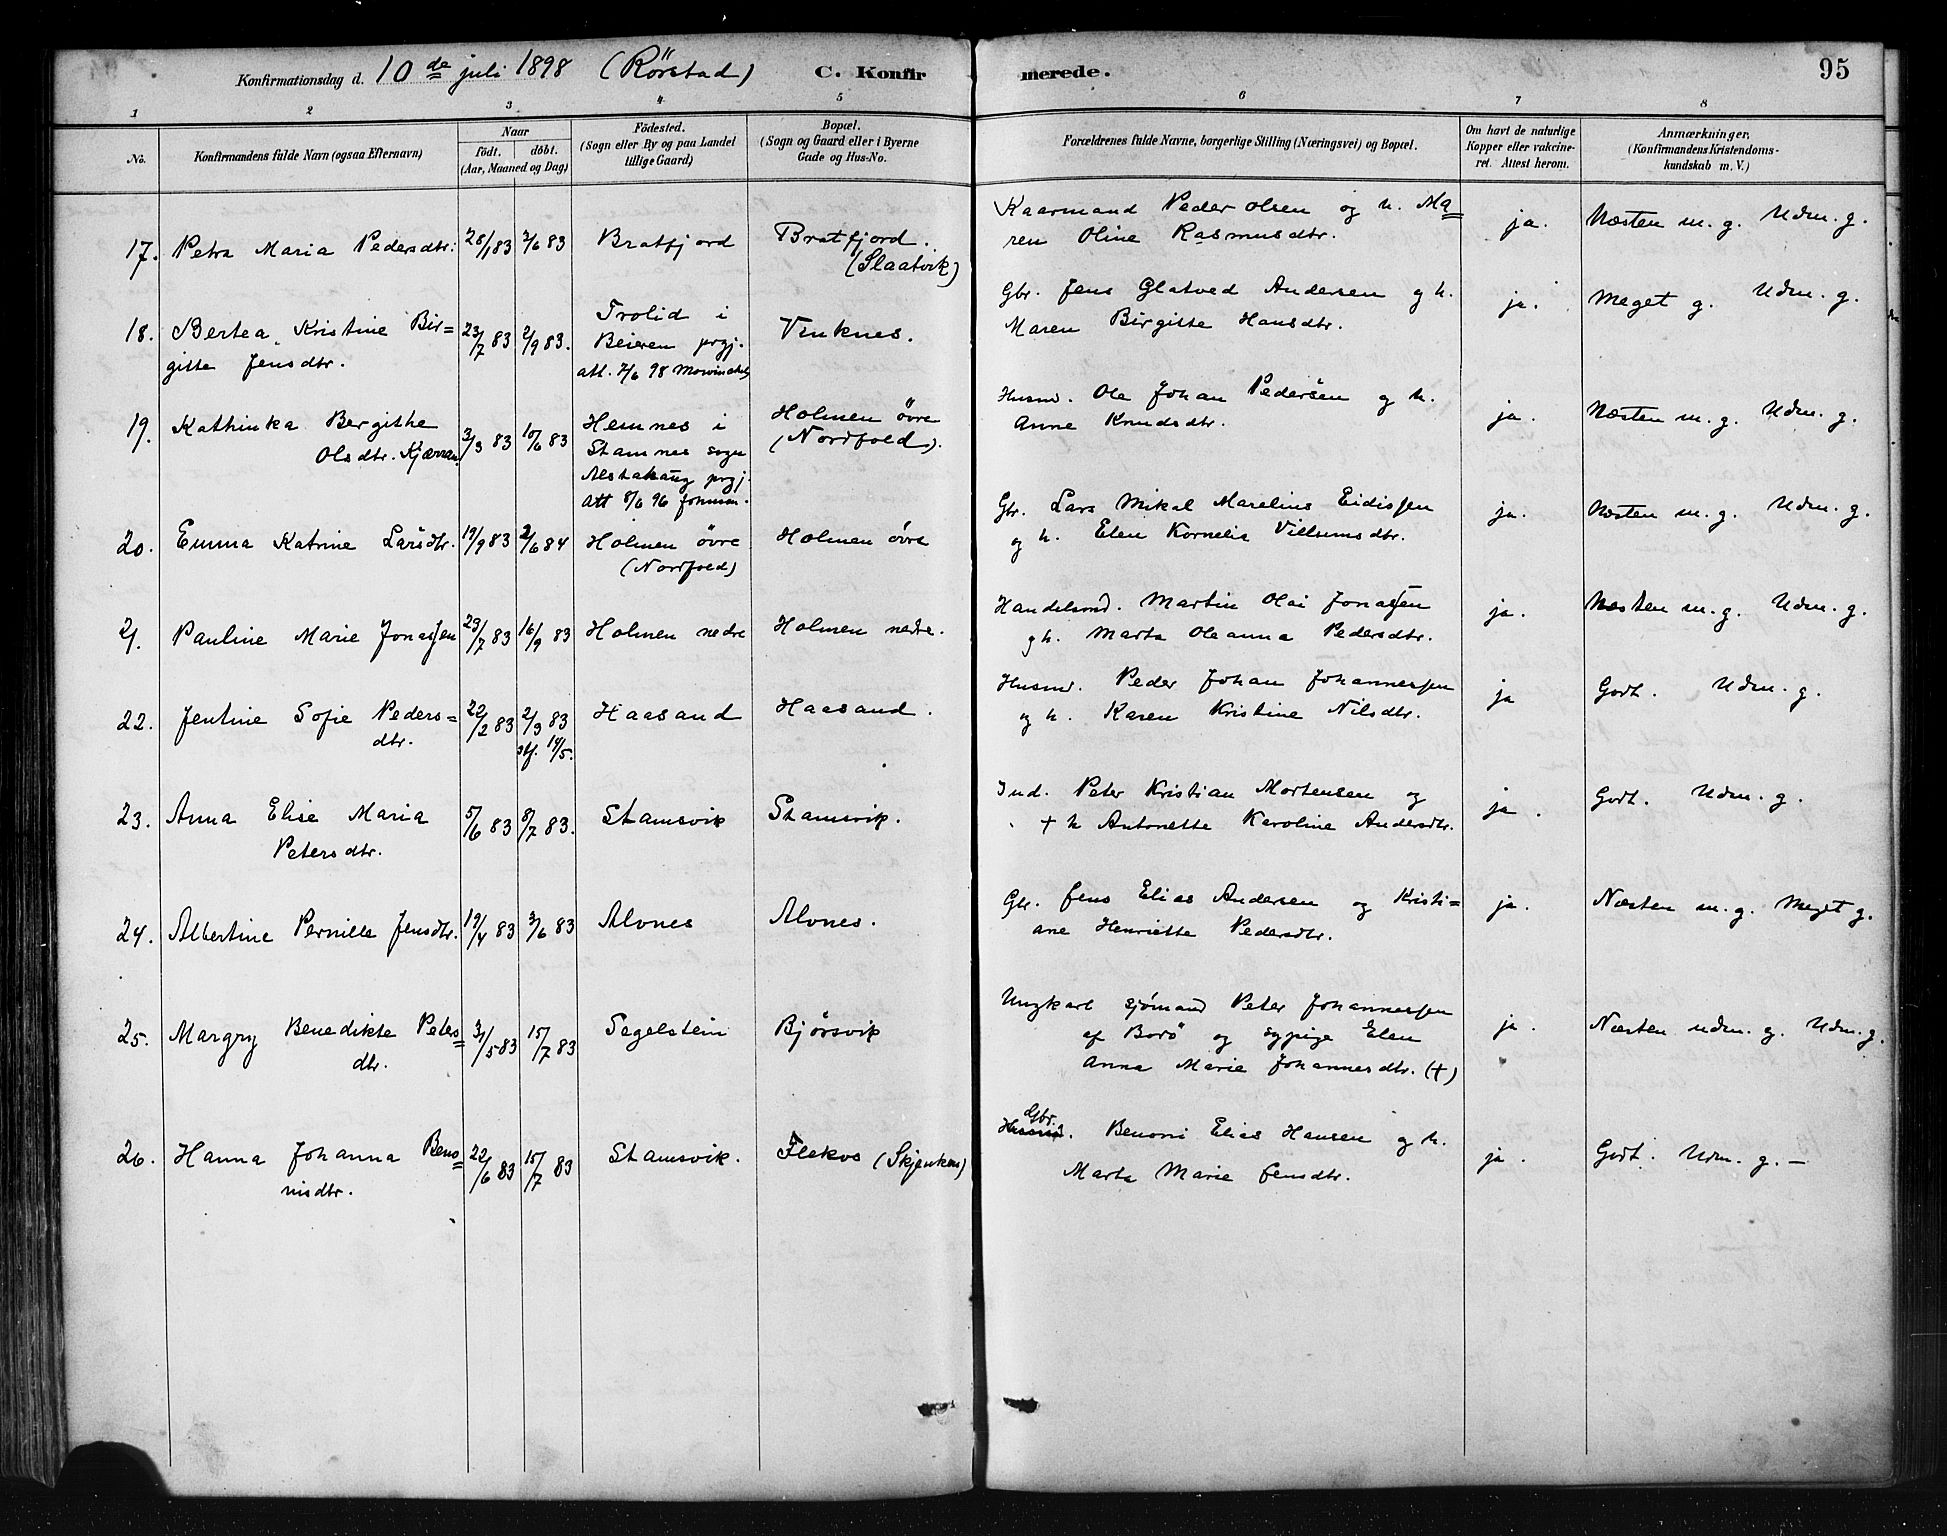 Konfirmationsdag d. 10de juli 1898 (Rörstad) C. Konfirmerede. 95
1 2 3 4 5 6 7 8
No.
Konfirmandens fulde Navn (ogsaa Efternavn)
Naar
födt. döbt.
(Aar, Maaned og Dag)
Födested.
(Sogn eller By og paa Landet
tillige Gaard)
Bopæl.
(Sogn og Gaard eller i Byerne
Gade og Hus-No.
Forældrenes fulde Navne, borgerlige Stilling (Næringsvei) og Bopæl.
Om havt de naturlige
Kopper eller vakcine-
ret. Attest herom.
Anmærkninger,
(Konfirmandens Kristendoms-
kundskab m. V.)
17. Petra Maria Pedersdtr. 28/1 83 2/6 83 Bratfjord Bratfjord.
(Slaatvik)
Kaarmand Peder Olsen og h. Ma=
ren Oline Rasmusdtr.
ja. Næsten m. g. Udm. g.
18. Bertea Kristine Bir=
gitte Jensdtr.
23/7 83 2/9 83.
Trolid i
Beieren prgj.
att. 7/6 98
Vinknes.
Gbr. Jens Glatved Andersen og h.
Maren Birgitte Hansdtr.
ja. Meget g. Udm. g.
19. Kathinka Bergithe
Olsdtr. Kjærran
3/3 83 10/6 83
Hemnes i
Stamnes sogn
Alstahaug prgj.
Att 8/6 96
Holmen övre
(Nordfold).
Husm. Ole Johan Pedersen og h.
Anne Knudsdtr.
ja. Næsten m. g. Udm. g.
20. Emma Katrine Larsdtr. 19/9 83 2/6 84 Holmen övre
(Nordfold)
Holmen övre
Gbr. Lars Mikal Marelius Eidissen
og h. Elen Kornelia Villumsdtr.
ja. Næsten m. g. Udm. g.
21. Pauline Marie Jonassen 23/7 83 16/9 83 Holmen nedre Holmen nedre.
Handelsmd. Martin Olai Jonassen
og h. Marta Oleanna Pedersdtr.
ja. Næsten m. g. Udm. g.
22. Jentine Sofie Peders=
dtr.
22/2 83 2/3 83
stf. 14/5.
Haasand Haasand.
Husmd. Peder Johan Johannessen
og h. Karen Kristine Nilsdtr.
ja Godt. Udm. g.
23. Anna Elise Maria
Petersdtr.
5/6 83 8/7 83. Stamsvik Stamsvik.
Ind. Peter Kristian Mortensen og
+ h Antonette Karoline Andersdtr.
ja. Godt. Udm. g.
24. Albertine Pernille Jensdtr. 19/4 83 3/6 83 Alvnes Alvnes.
Gbr. Jens Elias Andersen og Kristi=
ane Henriette Pedersdtr.
ja. Næsten m. g. Meget g.
25. Margry Benedikte Peters=
dtr.
31/5 83 15/7 83 Sagelstein Bjørsvik
Ungkarl sjömand Peter Johannessen
af Borö og sypige Elen
Anna Marie Johannesdtr. (+)
ja. Næsten udm. g. Udm. g.
26. Hanna Johanna Beno=
nisdtr.
22/6 83 15/7 83 Stamsvik. Flekvs (Skjenkens)
Gbr.
Husmd. Benoni Elias Hansen og h.
Marta Marie Jensdtr.
ja. Godt. Udm. g. –